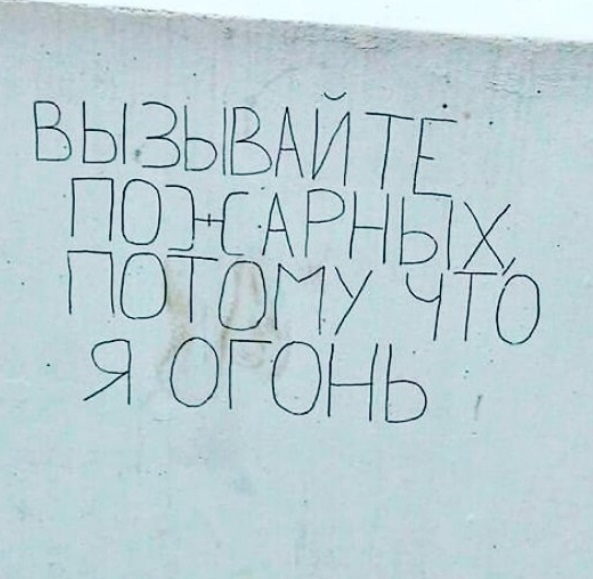 ВЫЗЫВАЙТЕ
ПОЖАРНЫХ,
ПОТОМУ ЧТО
Я ОГОНЬ